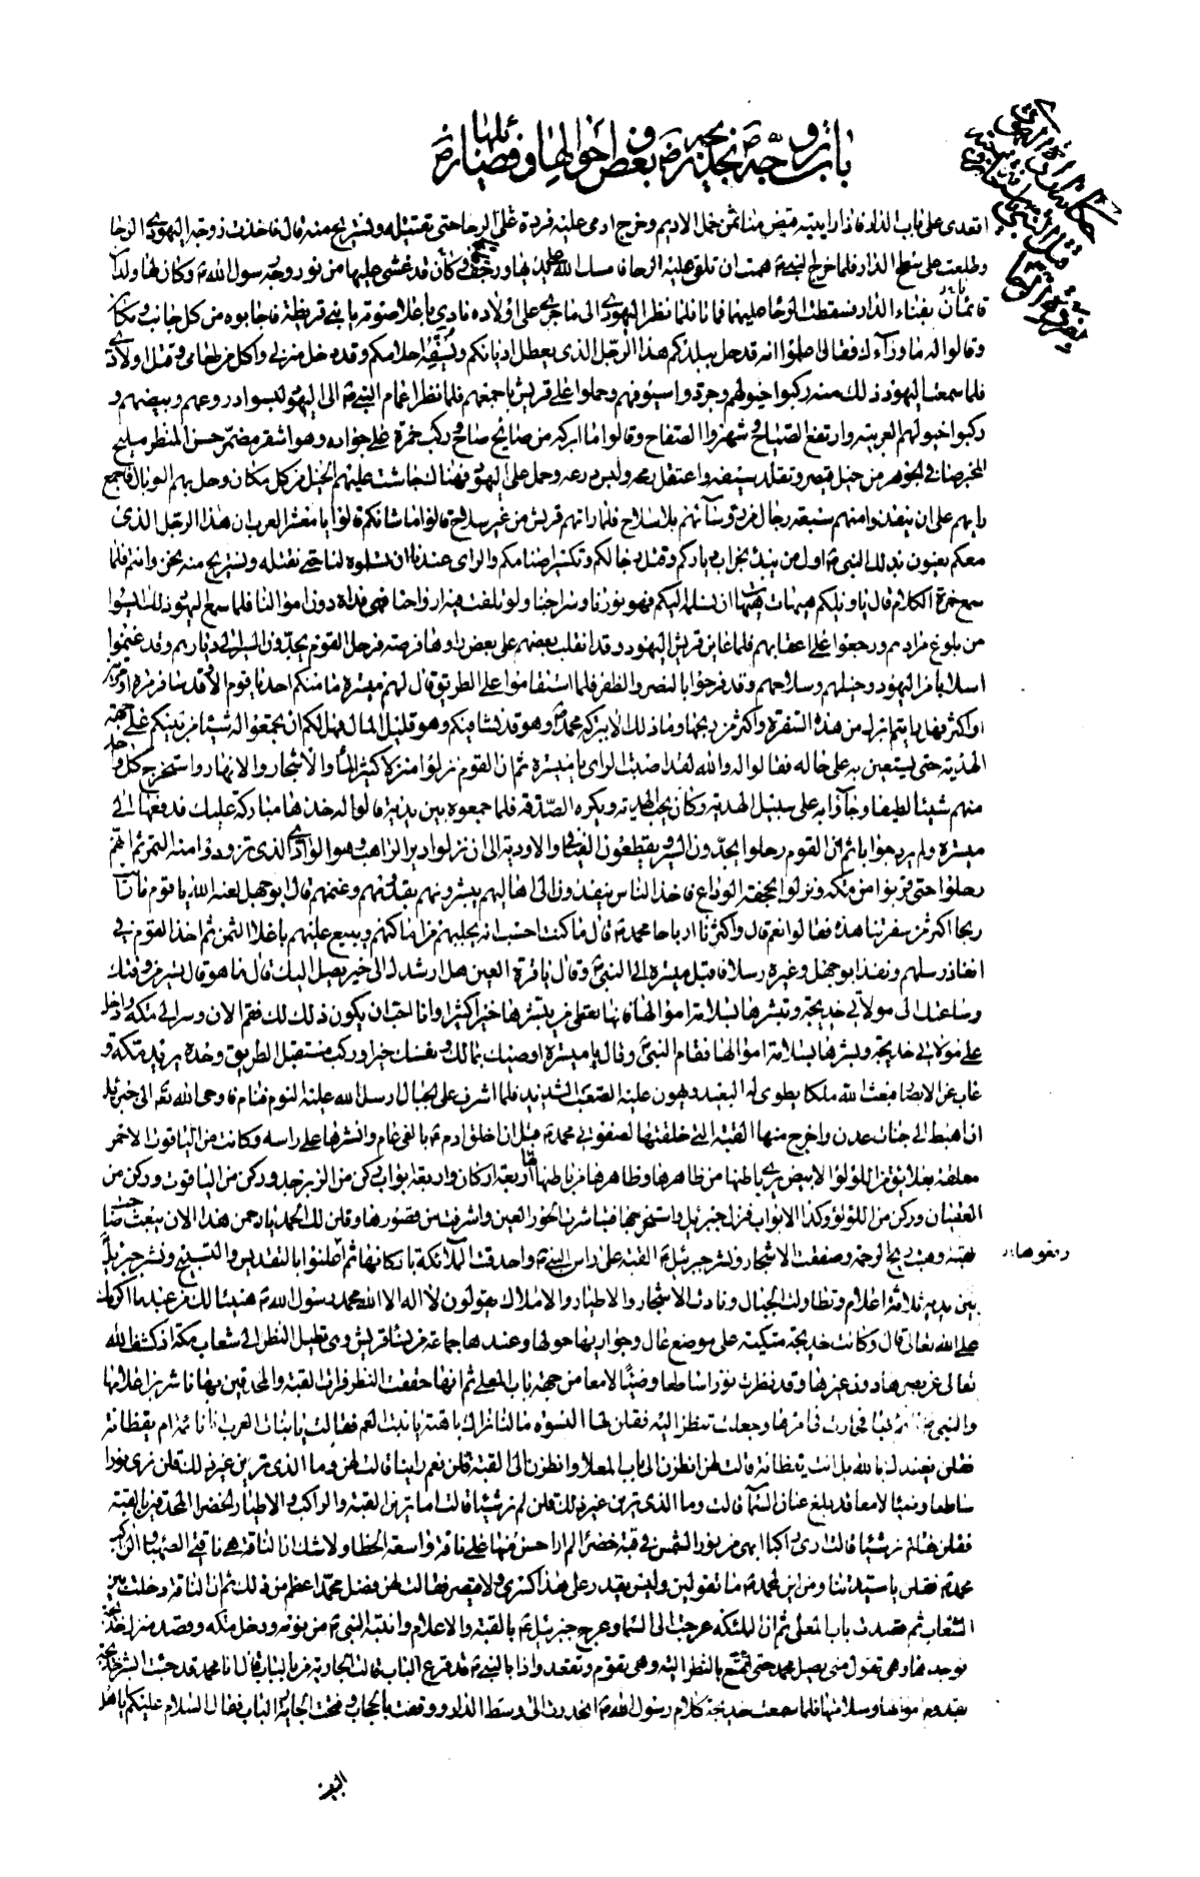 باب تزوجه ص بخديجة رض وبعض احوالها وفضائلها رض
اقعدى على باب الدار فاذا رايتيه قبض منا ثمن حمل الاديم وخرج ارمى عليه فردة على الرحا حتى نقتله ونستريح منه قال فاخذت زوجة اليهودى الرحا
وطلعت على سطح الدار فلما خرج النبى ص همت ان تلقى عليه الرحا فامسك الله يديها ورجف وكأن قد غشى عليها من نور وجه رسول الله ص وكان لها ولدان
قائمان بفناء الدار فسقطت الرحا عليهما فماتا فلما نظر اليهودى الى ما جرى على اولاده نادى باعلا صوته يا بنى قريظة فاجابوه من كل جانب ومكان
وقالوا له ما وراءك فقال اعلموا انه قد حل ببلدكم هذا الرجل الذى يعطل اديانكم ويسفه احلامكم وقد دخل منزلى واكل من طعامى وقتل اولادى
فلما سمعت اليهود ذلك منه ركبوا خيولهم وجردوا سيوفهم وحملوا على قريش باجمعهم فلما نظر اعمام النبى ص الى اليهود لبسوا دروعهم وبيضهم و
ركبوا خيولهم العربية وارتفع الصياح وشهروا الصفاح وقالوا ما ابركه من صايح صاح وركب حمزة على جواده وهو اشقر مضمر حسن المنظر مليح
المخبر صافى الجوهر من خيل قيصر وتقلد بسيفه واعتقل برمحه ولبس درعه وحمل على اليهود فهنالك جاشت عليهم الخيل من كل مكان وحل بهم الوبال فاجمع
رايهم على ان ينفذوا منهم سبعة رجال من رؤسائهم بلا سلاح فلما راتهم قريش من غير سلاح قالوا ما شانكم قالوا يا معشر العرب ان هذا الرجل الذى
معكم يعنون بذلك النبى ص اول من يبدء بخراب دياركم وقتل رجالكم وتكسير اصنامكم والراى عندنا ان تسلموه لنا حتى نقتله ونستريح منه نحن وانتم فلما
سمع حمزة الكلام قال يا ويلكم هيهات هيهات ان نسلمه اليكم فهو نورنا وسراجنا ولو تلفت فيه ارواحنا فهى فداه دون اموالنا فلما سمع اليهود ذلك ايسوا
من بلوغ مرادهم ورجعوا على اعقابهم فلما عاين قريش اليهود وقد انقلب بعضهم على بعض راوها فرصة فرحل القوم يجدون السير الى ديارهم وقد غنموا
اسلابا من اليهود وخيلهم وسلاحهم وقد فرحوا بالنصر والظفر فلما استقاموا على الطريق قال لهم ميسرة ما منكم احد يا قوم الا وقد سافر مرة او مرتين
او اكثر فهل رايتم ابرك من هذه السفرة واكثر من ربحها وما ذلك الا ببركة محمد ص وهو قد نشا فيكم وهو قليل المال فهل لكم ان تجمعوا له شيئا من بينكم على جهة
الهدية حتى يستعين به على حاله فقالوا له والله لقد اصبت الراى يا ميسرة ثم ان القوم نزلوا منزلا كثير الماء والاشجار والانهار واستخرج كل واحد
منهم شيئا لطيفا وجاؤا به على سبيل الهدية وكان يحب الهدية ويكره الصدقة فلما جمعوه بين يديه قالوا له خذها مباركة عليك فدفعها الى
ميسرة ولم يرد جوابا ثم ان القوم رحلوا يجدون السير ويقطعون الفيافى والاودية الى ان نزلوا دير الراهب وهو الوادى الذى تزودوا منه التمر ثم انهم
رحلوا حتى قربوا من مكة ونزلوا بجحفة الوداع فاخذ الناس ينفذون الى اهاليهم يبشرونهم بقدومهم وغنمهم قال ابو جهل لعنه الله يا قوم ما رايت
ربحا اكثر من سفرتنا هذه فقالوا نعم قال واكثرنا ارباحا محمد ص قال ما كنت احسب انه يجلبهم من اماكنهم ويبيع عليهم باغلا الثمن ثم اخذ القوم فى
انفاذ رسلهم ونفذ ابو جهل وغيره رسلا فاقبل ميسرة الى النبى ص وقال يا قرة العين هل ارشدك الى خير يصل اليك قال ما هو قال تسير من وقتك
وساعتك الى مولاتى خديجة وتبشرها بسلامة اموالها فانها تعطى من يبشرها خيرا كثيرا وانا احب ان يكون ذلك لك فقم الان وسر الى مكة وادخل
على مولاتى خديجة وبشرها بسلامة اموالها فقام النبى ص وقال يا ميسرة اوصيك بمالك ونفسك خيرا وركب مستقبل الطريق وحده يريد مكة و
غاب عن الابصار فبعث الله ملكا يطوى له البعيد ويهون عليه الصعب الشديد فلما اشرف على الجبال ارسل الله عليه النوم فنام فاوحى الله تعالى الى جبرئيل
ان اهبط الى جنات عدن واخرج منها القبة التى خلقتها لصفوتى محمد ص قبل ان اخلق ادم ع بالفى عام وانشرها على راسه وكانت من الياقوت الاحمر
معلقة بعلايق من اللؤلؤ الابيض يرى باطنها من ظاهرها وظاهرها من باطنها لها اربعة اركان واربعة ابواب ركن من الزبرجد وركن من الياقوت وركن من
العقيان وركن من اللؤلؤ وكذا الابواب فنزل جبرئيل واستخرجها فتباشرت الحور العين واشرفت من قصورها وقلن لك الحمد يا رحمن هذا الان يبعث صاحب
القبة وهبت ريح الرحمة وصفقت الاشجار ونشر جبرئيل ع القبة على راس النبى ص واحدقت الملائكة باركانها ثم اعلنوا بالتقديس والتسبيح ونشر جبرئيل
بين يديه ثلاثة اعلام وتطاولت الجبال ونادت الاشجار والاطيار والاملاك يقولون لا اله الا الله محمد رسول الله ص هنيئا لك من عبد ما اكرمك
على الله تعالى قال وكانت خديجة متكية على موضع عال وجواريها حولها وعندها جماعة من نساء قريش وهى تطيل النظر الى شعاب مكة اذ كشف الله
تعالى عن بصرها دون غيرها وقد نظرت نورا ساطعا وضياء لامعا من جهة باب المعلى ثم انها حققت النظر فرات القبة والمحدقين بها ناشرين اعلامها
والنبى ص فحارت فى امرها وجعلت تنظر اليه فقلن لها النسوة ما لنا نراك باهتة يا بنت العم فقالت يا بنات العرب انا نائمة ام يقظانة
فقلن نعيذك بالله بل انت يقظانة قالت لهن انظرن الى باب المعلا وانظرن الى القبة قلن نعم راينا قالت لهن وما الذى ترين غير ذلك قلن نرى نورا
ساطعا وضياء لامعا قد بلغ عنان السماء قالت وما الذى ترين غير ذلك قلن لم نر شيئا قالت اما ترين القبة والراكب والاطيار الخضر المحدقين بالقبة
فقلن لها لم نر شيئا قالت ارى راكبا ابهى من نور الشمس فى قبة خضراء لم ار احسن منها على ناقة واسعة الخطا ولا شك ان الناقة هى ناقتى الصهباء والراكب
محمد ص فقلن يا سيدتنا ومن اين لمحمد ص ما تقولين وليس يقدر على هذا كسرى ولا قيصر فقالت لهن فضل محمد اعظم من ذلك ثم ان الناقة دخلت بين
الشعاب ثم قصدت باب المعلى ثم ان الملئكة عرجت الى السماء وعرج جبرئيل ع بالقبة والاعلام وانتبه النبى ص من نومه ودخل مكة وقصد منزل خديجة
فوجدها وهى تقول متى يصل محمد حتى اتمتع بالنظر اليه وهى تقوم وتقعد واذا بالنبى ص قد قرع الباب قالت الجارية من بالباب قال انا محمد قد جئت ابشر خديجة
بقدوم اموالها وسلامتها فلما سمعت خديجة كلام رسول الله ص انحدرت الى وسط الدار ووقفت بالحجاب وفتحت الجارية الباب فقال السلام عليكم يا اهل
البيت